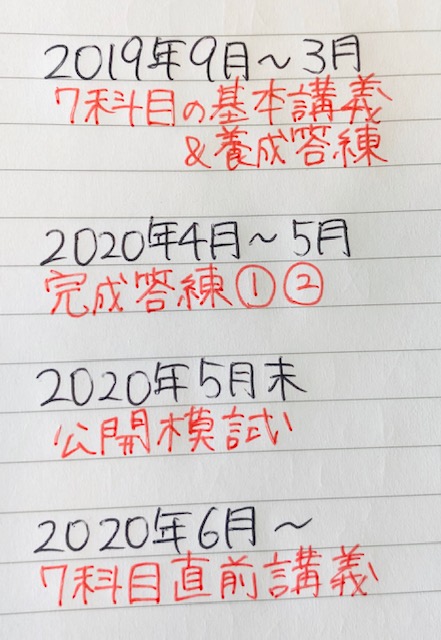 2019年9月～3月
7科目の基本講義
&養成答練
2020年4月～5月
完成答練①②
2020年5月末
公開模試い
2020年6月～
7科目直前講義